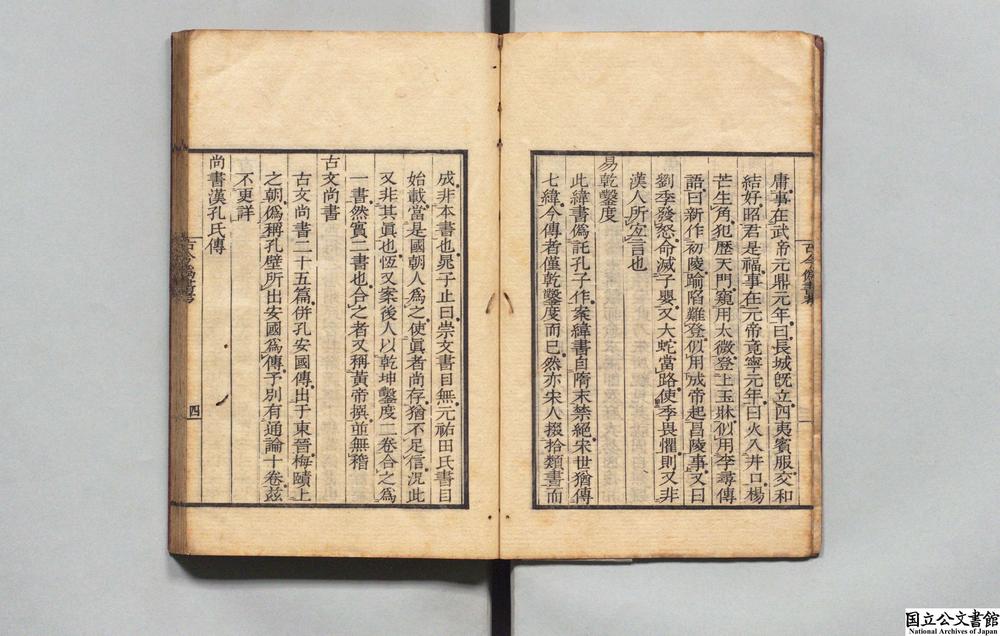 庸事在武帝元鼎元年曰長城旣立四夷賓服交和
結好昭君是福事在元帝竟寧元年曰火入井口楊
芒生角犯歷天門窺用太微登上玉牀似用李尋傳
語曰新作初陵踰陷難登似用成帝起昌陵事又曰
劉季發怒命滅子嬰又大蛇當路使季畏懼則又非
漢人所宐言也
易乾鑿度
此緯書僞託孔子作案緯書自隋末禁絕宋世猶傳
七緯今傳者僅乾鑿度而已然亦宋人掇拾類書而
古今僞書考
成非本書也晁子止曰崇文書目無元祐田氏書目
始載當是國朝人爲之使眞者尚存猶不足信況此
又非其眞也恆又案後人以乾坤鑿度二卷合之爲
一書然實二書也合之者又稱黃帝撰並無稽
古文尚書
古文尚書二十五篇併孔安國傳出于東晉梅賾上
之朝僞稱孔壁所出安國爲傳予別有通論十卷茲
不更詳
尚書漢孔氏傳
古今僞書考
四
国立公文書館
National Archives of Japan